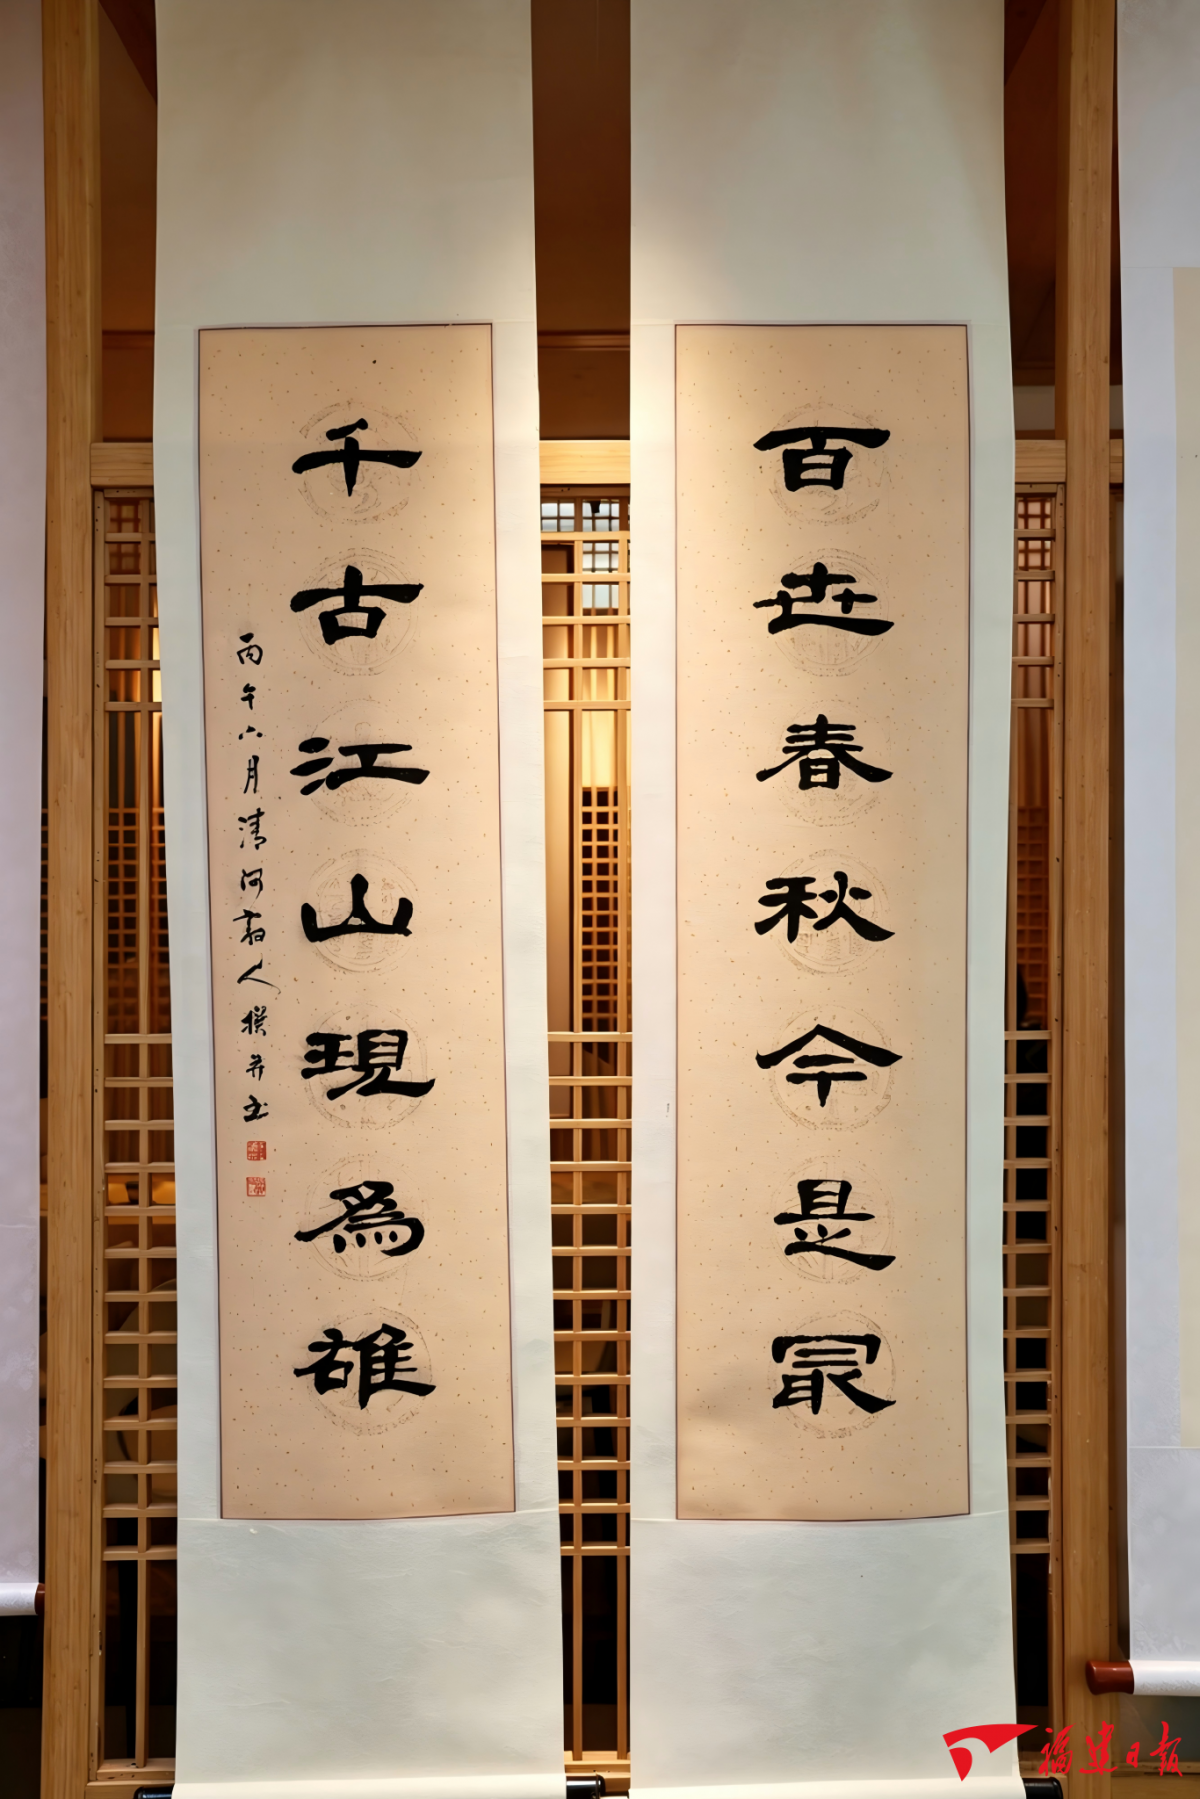 百世春秋今是冣
千古江山現為雄
丙午六月清河翁人撰并书
福建日报